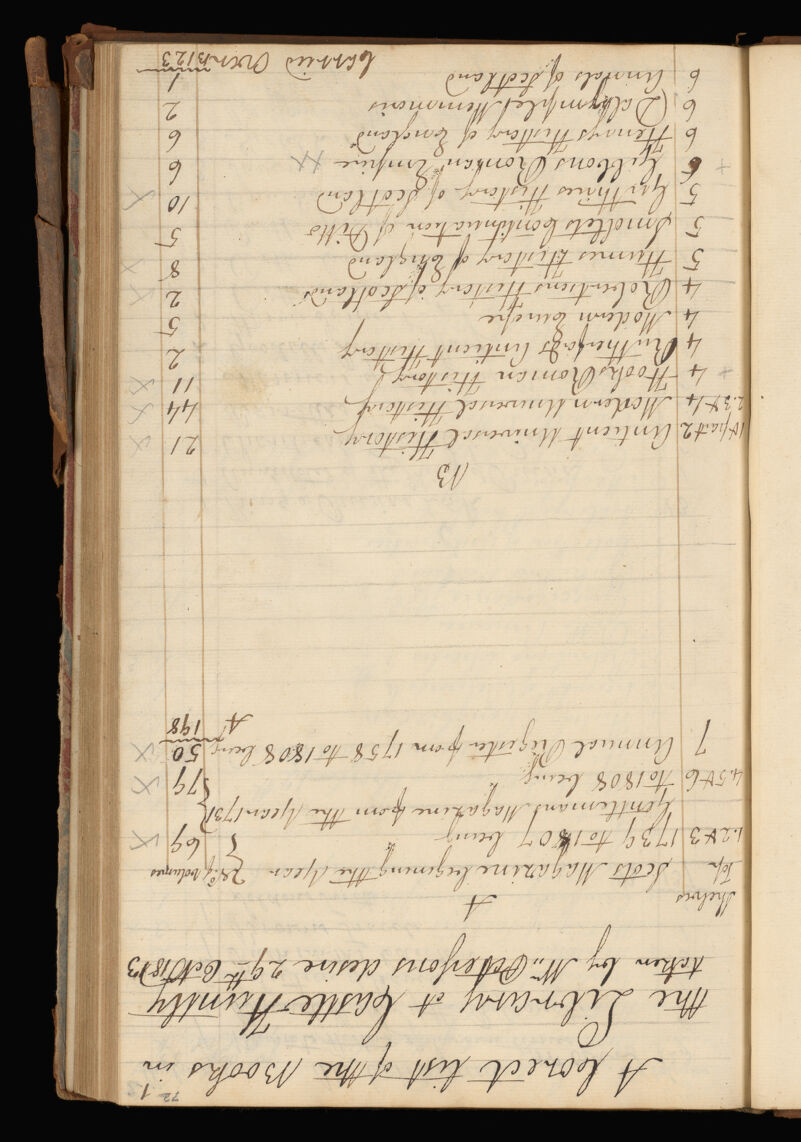 72 1
A Corect list of the Books in
the Library at Castle Huntly
taken by Mr Pattersons desire 29th Octr 1813
A
Shelves
Top Scots Magazine begining the Year No. of volumes
1.2&3 1739 to 1807 being 69 X
Gentlemans Magazine from the Year 1731
4.5&6 to 1808 being 79 X
7 Annual Register from 1758 to 1808 being 50 X
A 198
B
1 & part 2 Antient Universel History 21 X
2.3&4 Modern Universel History 44 X
+ 4 Hooks Roman History 11 X
4 Rutherfords Antient History 2
4 Modern Europe 5
4 Robertsons History of Scotland 2 X
5 Humes History of England 8 X
5 Smollets Continuation of Ditto 5
5 Guthries History of Scotland 10 X
+ 6 Gibbons Roman Empire XX 6
6 Henrys History of England 6
6 Dalrymples Memorois 2
6 Annals of Scotland 1
Carried Over B 123